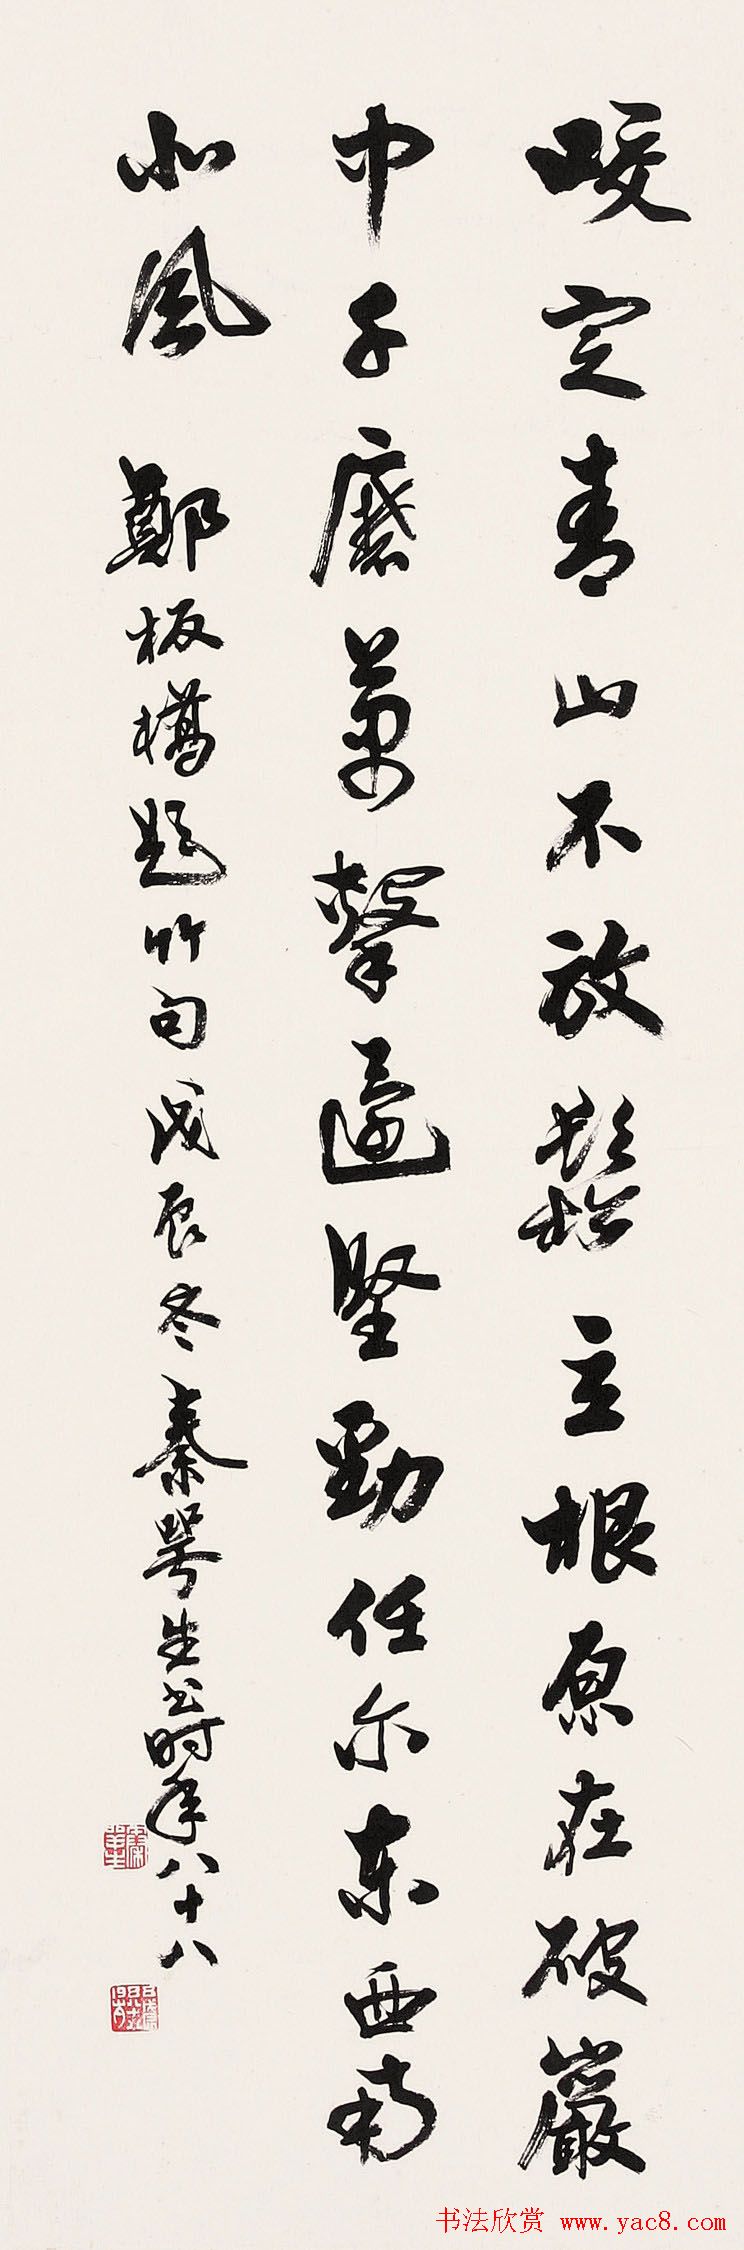 咬定青山不放鬆立根原在破巖
中千磨萬擊還堅勁任尔東西南
北風 鄭板橋題竹句戊辰冬秦咢生書時年八十八
书法欣赏 www.yac8.com